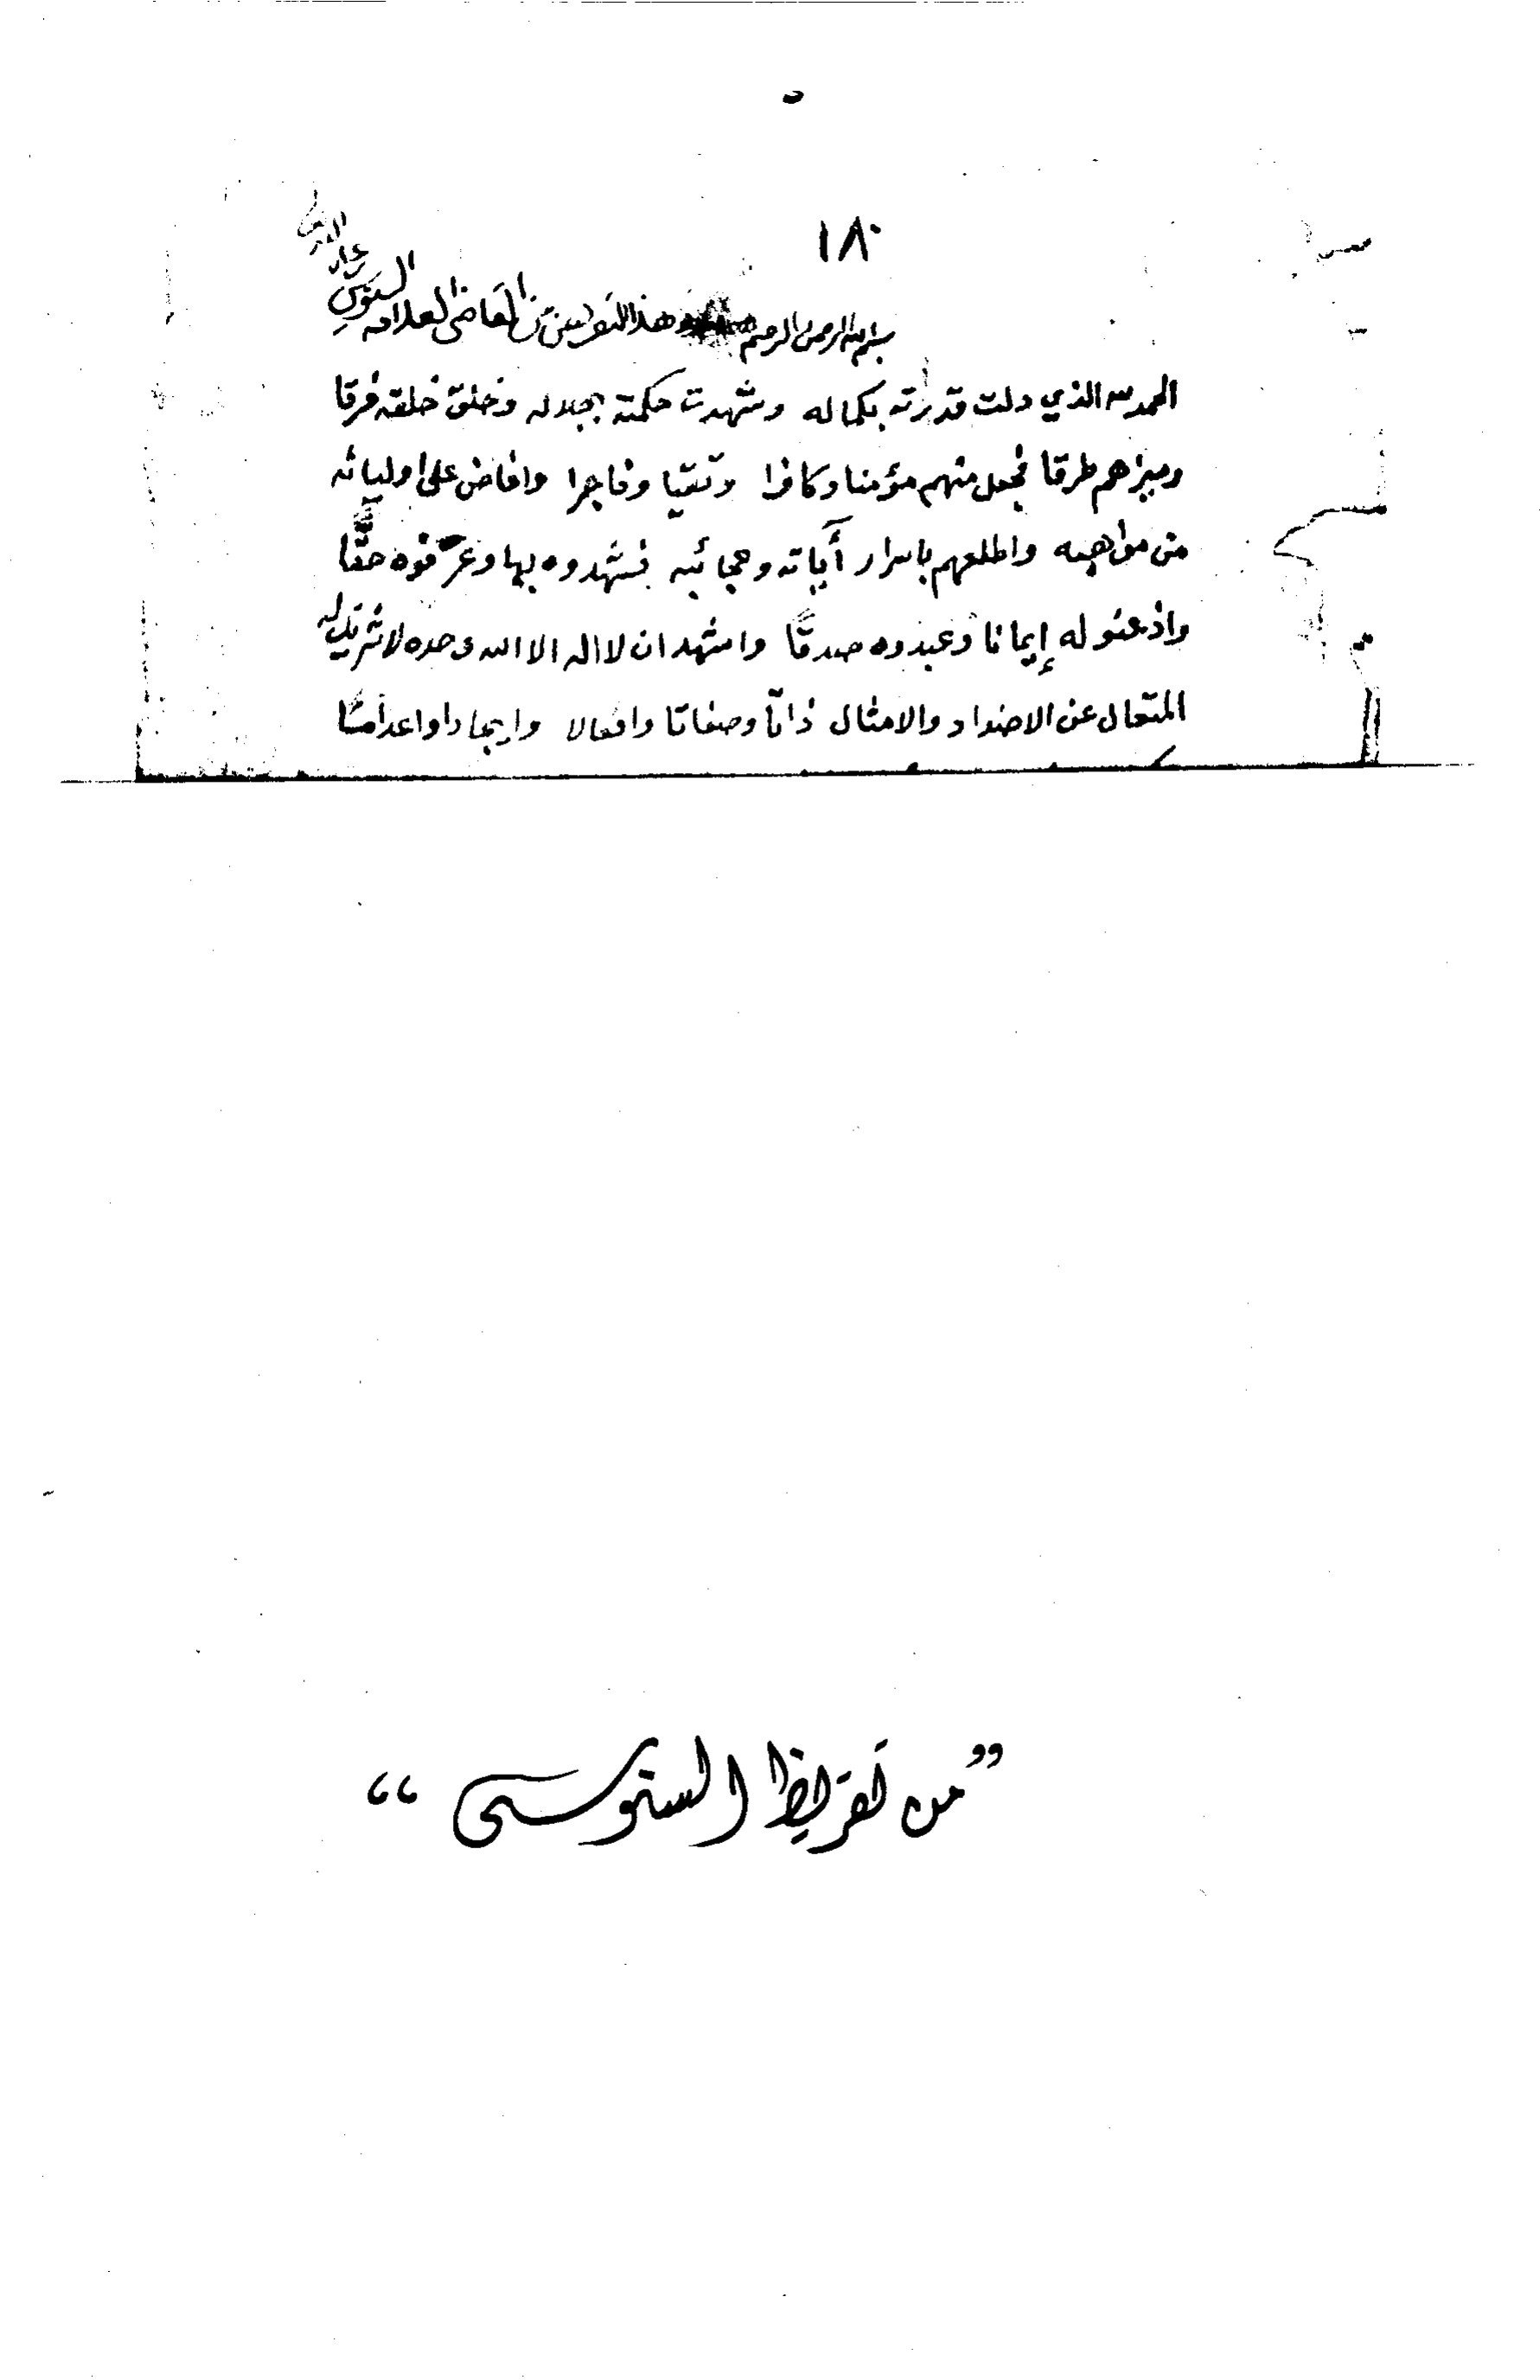 ١٨٠
بسم الله الرحمن الرحيم هذا التقريض من القاضي العلامه السنوسي
الحمد لله الذي دلت قدرته بكماله وشهدت حكمته بجلاله وخلق خلقه فرقا
وميزهم طرقا فجعل منهم مؤمنا وكافرا وتقيا وفاجرا وافاض على اوليائه
من مواهبه واطلعهم باسرار أياته وعجائبه فشهدوه بها وعرّفوه حقًّا
واذعنو له إيمانا وعبدوه صدقًا واشهد ان لا اله الا الله وحده لا شريك له
المتعال عن الاضداد والامثال ذاتًا وصفاتا وافعالا وايجادا واعداما
”من تقريظ السنوسى“